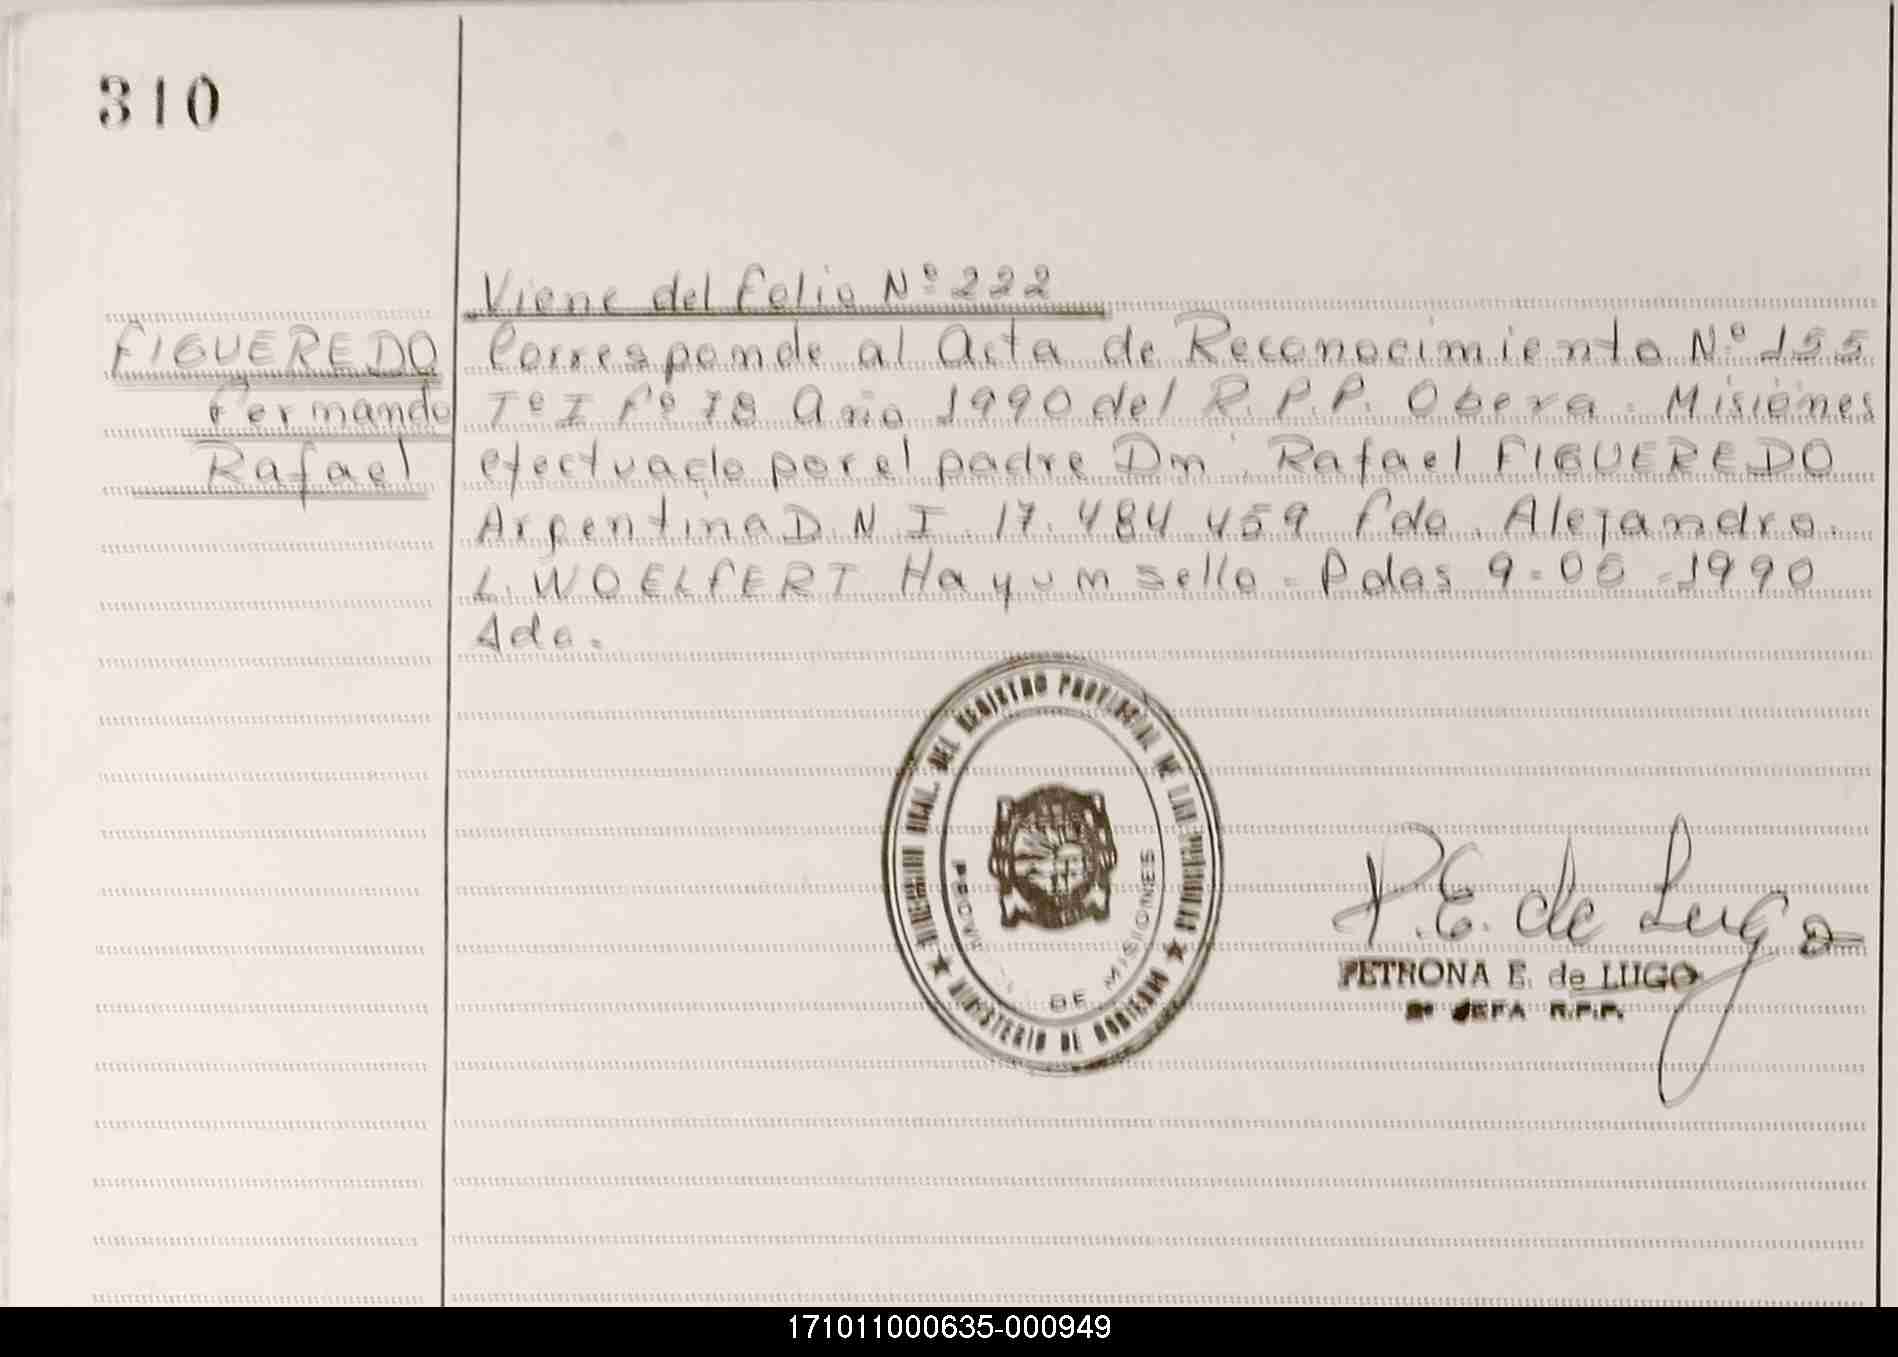 310
Viene del Folio Nº 222
FIGUEREDO
Fernando
Rafael
Corresponde al Acta de Reconocimiento Nº 155
Tº I Fº 78 Año 1990 del R.P.P. Obera. Misiones
efectuado por el padre Dn. Rafael FIGUEREDO
Argentina D.N.I. 17.484.459 Fdo. Alejandro.
L. WOELFERT Hay un sello. Pdas 9-06-1990
DEL REGISTRO PROVINCIAL DE LAS PERSONAS
MINISTERIO DE GOBIERNO
DE MISIONES
P.E. de Lugo
PETRONA E. de LUGO
2º JEFA R.P.P.
171011000635-000949